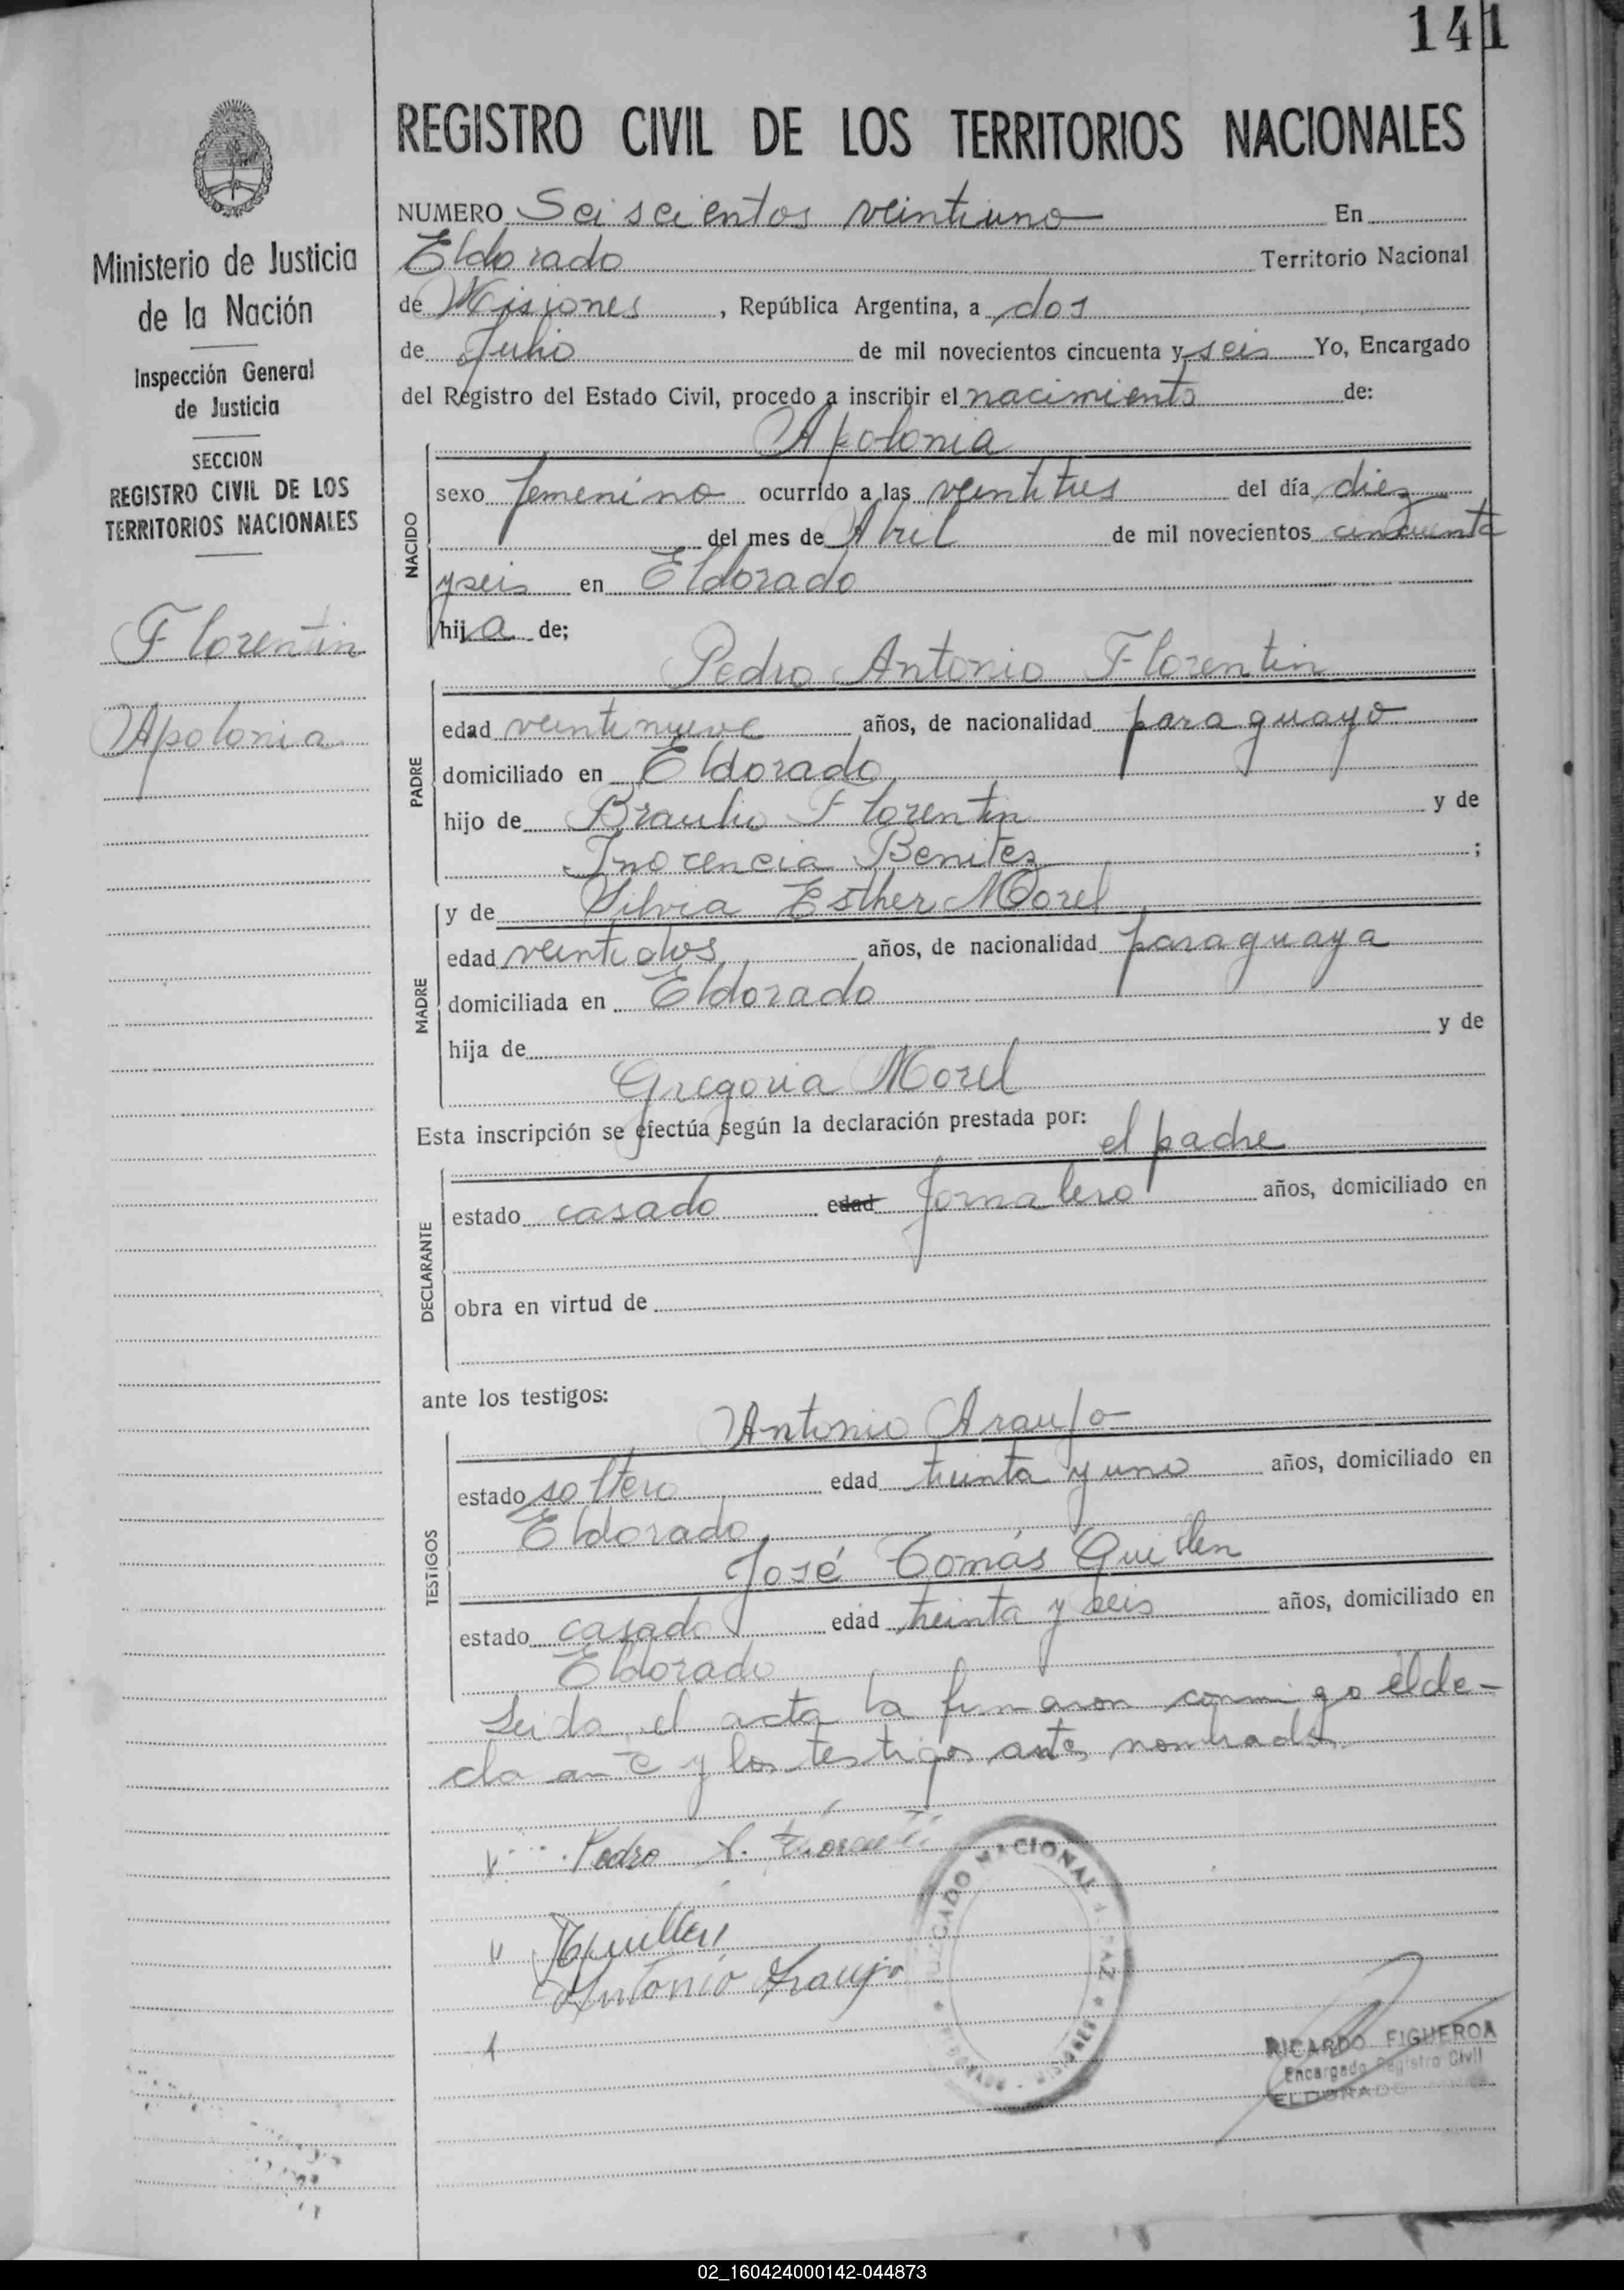 141
REGISTRO CIVIL DE LOS TERRITORIOS NACIONALES
Ministerio de Justicia
de la Nación
Inspección General
de Justicia
SECCION
REGISTRO CIVIL DE LOS
TERRITORIOS NACIONALES
Florentin
Apolonia
NUMERO Seiscientos veintiuno En
Eldorado Territorio Nacional
de Misiones, República Argentina, a dos
de Julio de mil novecientos cincuenta y seis Yo, Encargado
del Registro del Estado Civil, procedo a inscribir el nacimiento de:
Apolonia
NACIDO
sexo femenino ocurrido a las veintitres del día diez
del mes de Abril de mil novecientos cincuenta
y seis en Eldorado
hija de;
Pedro Antonio Florentin
PADRE
edad veintinueve años, de nacionalidad paraguayo
domiciliado en Eldorado
hijo de Braulio Florentin y de
Inocencia Benitez ;
MADRE
y de Silvia Esther Morel
edad veintidos años, de nacionalidad paraguaya
domiciliada en Eldorado
hija de y de
Gregoria Morel
Esta inscripción se efectúa según la declaración prestada por:
el padre
DECLARANTE
estado casado edad Jornalero años, domiciliado en
obra en virtud de
ante los testigos:
Antonio Araujo
TESTIGOS
estado soltero edad treinta y uno años, domiciliado en
Eldorado
José Tomás Quillen
estado casado edad treinta y seis años, domiciliado en
Eldorado
Leida el acta la firmaron conmigo el de-
y los testigos antes nombrados
Pedro A.
Antonio Araujo
NACIONAL
RICARDO FIGUEROA
Encargado Registro Civil
ELDORADO
02_160424000142-044873